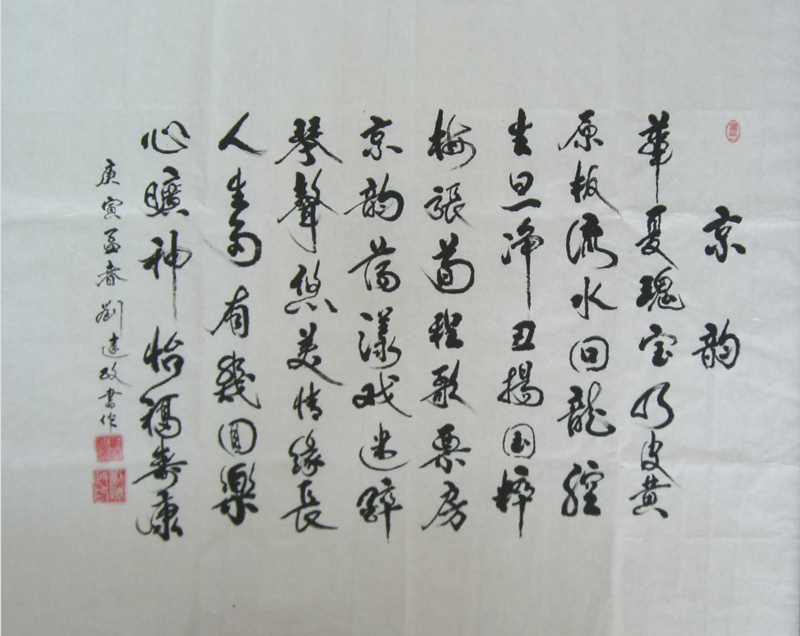 京韵
華夏瑰宝乃皮黄
原板流水回龍腔
生旦净丑揚国粹
梅張荀程歌票房
京韵荡漾戏迷醉
琴聲悠美情缘長
人生可有幾回樂
心曠神怡福寿康
庚寅孟春劉建政書作